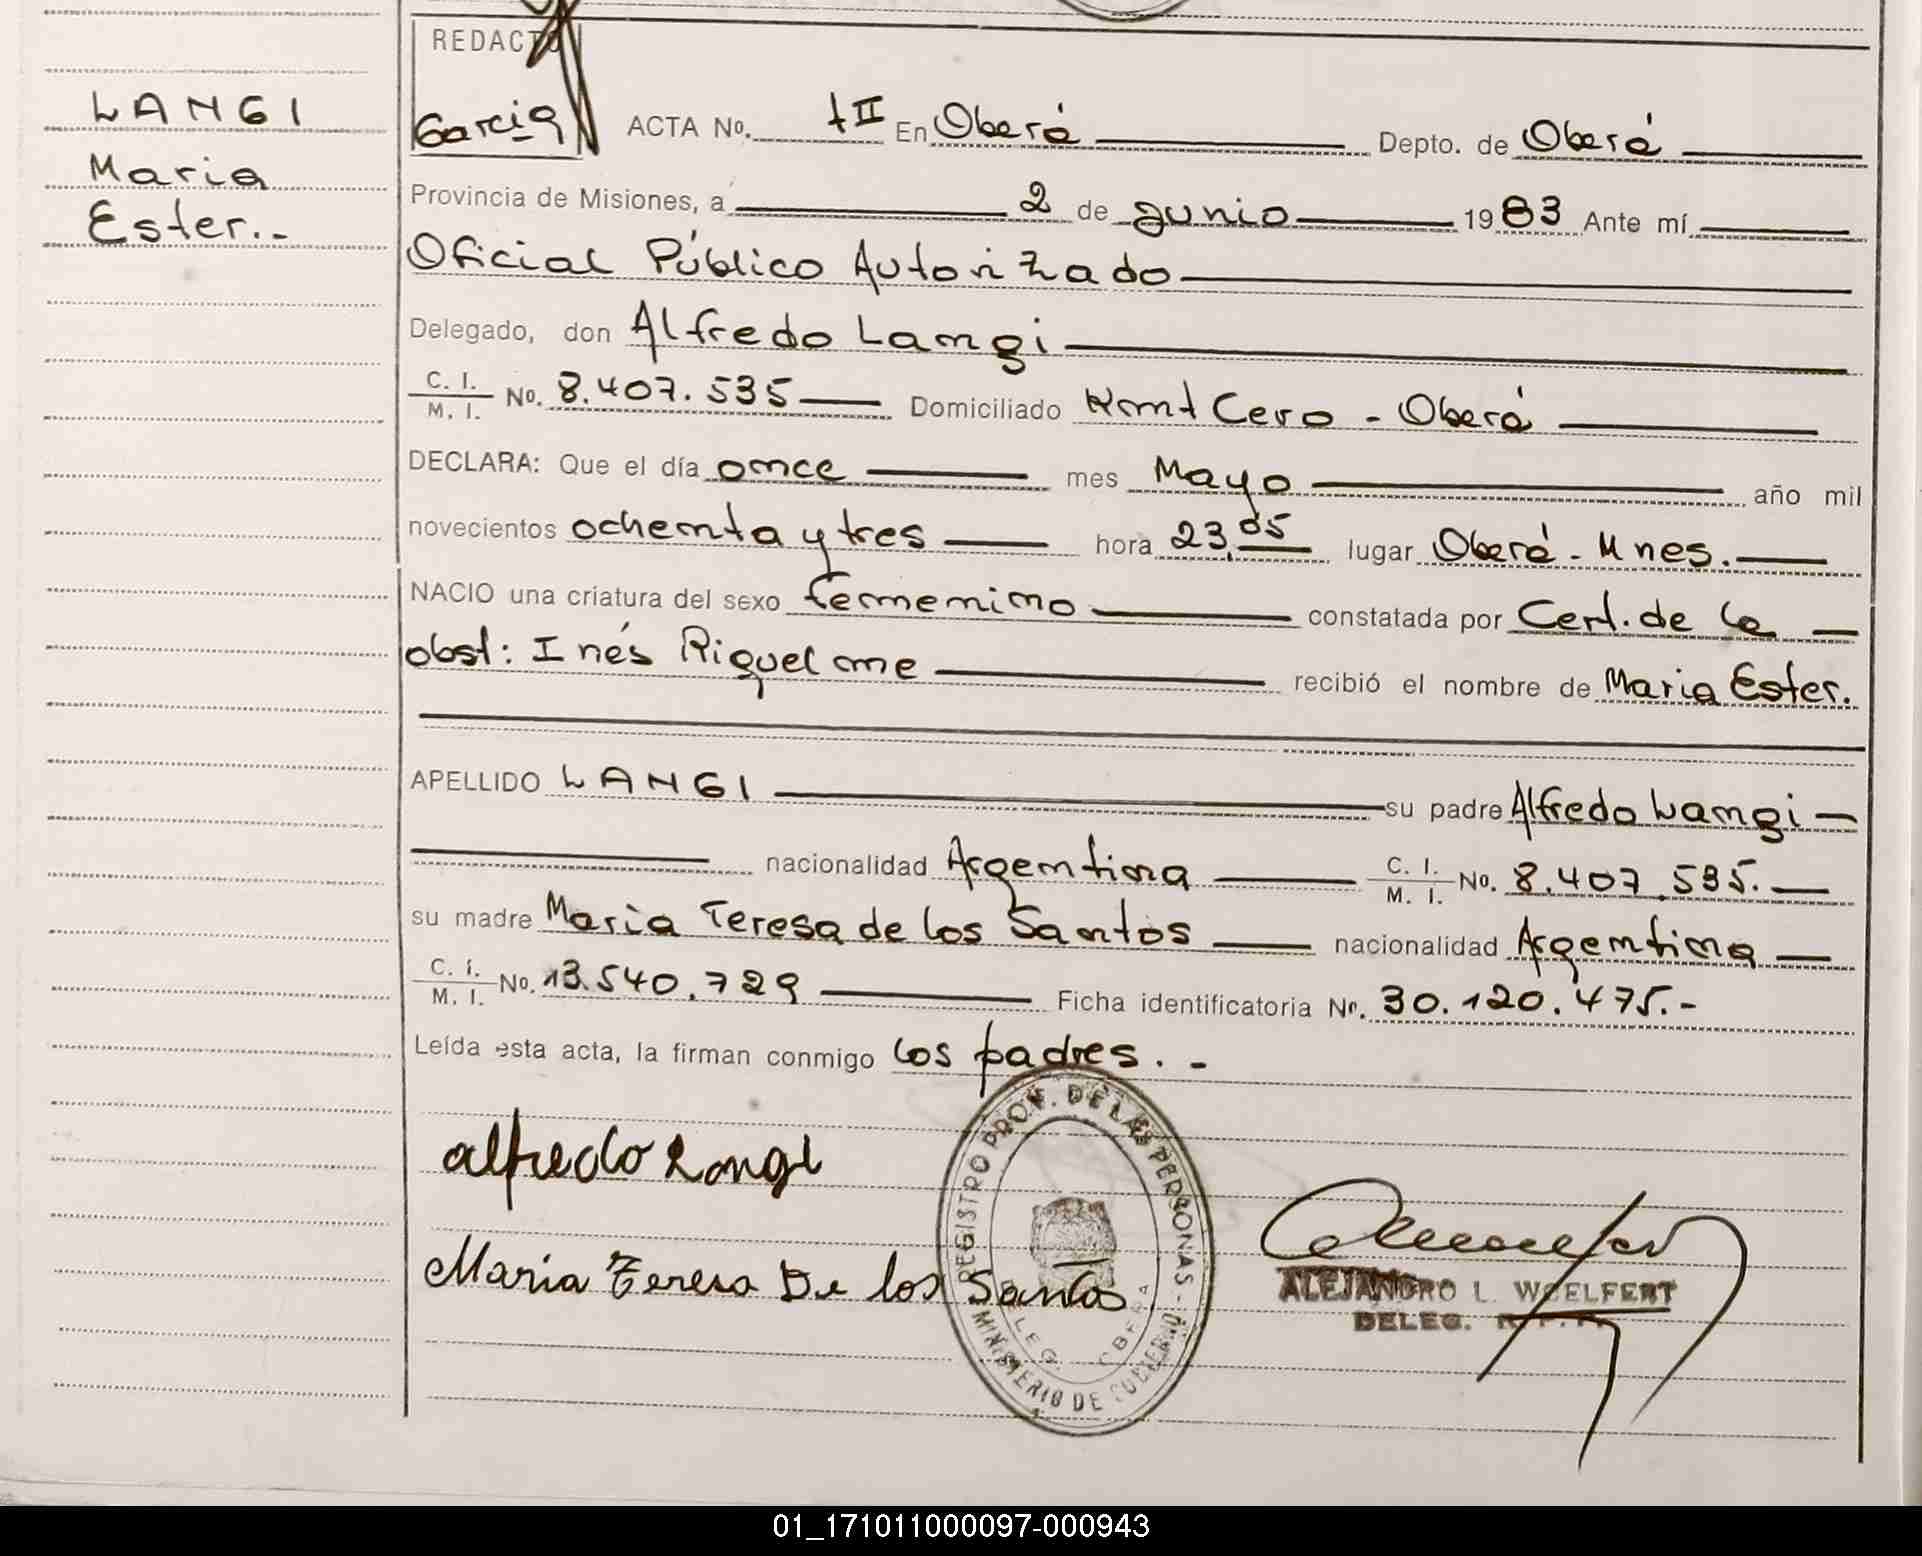 LANGI
Maria
Ester.-
REDACTO
Garcia
ACTA No. tII En Oberá Depto. de Oberá
Provincia de Misiones, a 2 de Junio 1983 Ante mí
Oficial Público Autorizado
Delegado, don Alfredo Langi
C. I. / M. I. No. 8.407.535 Domiciliado Km1 Cero - Oberá
DECLARA: Que el día once mes Mayo año mil
novecientos ochenta y tres hora 23,05 lugar Oberá - Mnes.
NACIO una criatura del sexo femenino constatada por Cert. de la
obst: Inés Riquelme recibió el nombre de Maria Ester.
APELLIDO LANGI su padre Alfredo Langi
nacionalidad Argentina C. I. / M. I. No. 8.407.535.
su madre Maria Teresa de los Santos nacionalidad Argentina
C. I. / M. I. No. 13.540.729 Ficha identificatoria No. 30.120.475.-
Leída esta acta, la firman conmigo los padres.-
alfredo Langi
Maria Teresa De los Santos
REGISTRO PROV. DE LAS PERSONAS - MINISTERIO DE GOBIERNO
DELEG. OBERA
ALEJANDRO L. WOELFERT
DELEG.
01_171011000097-000943